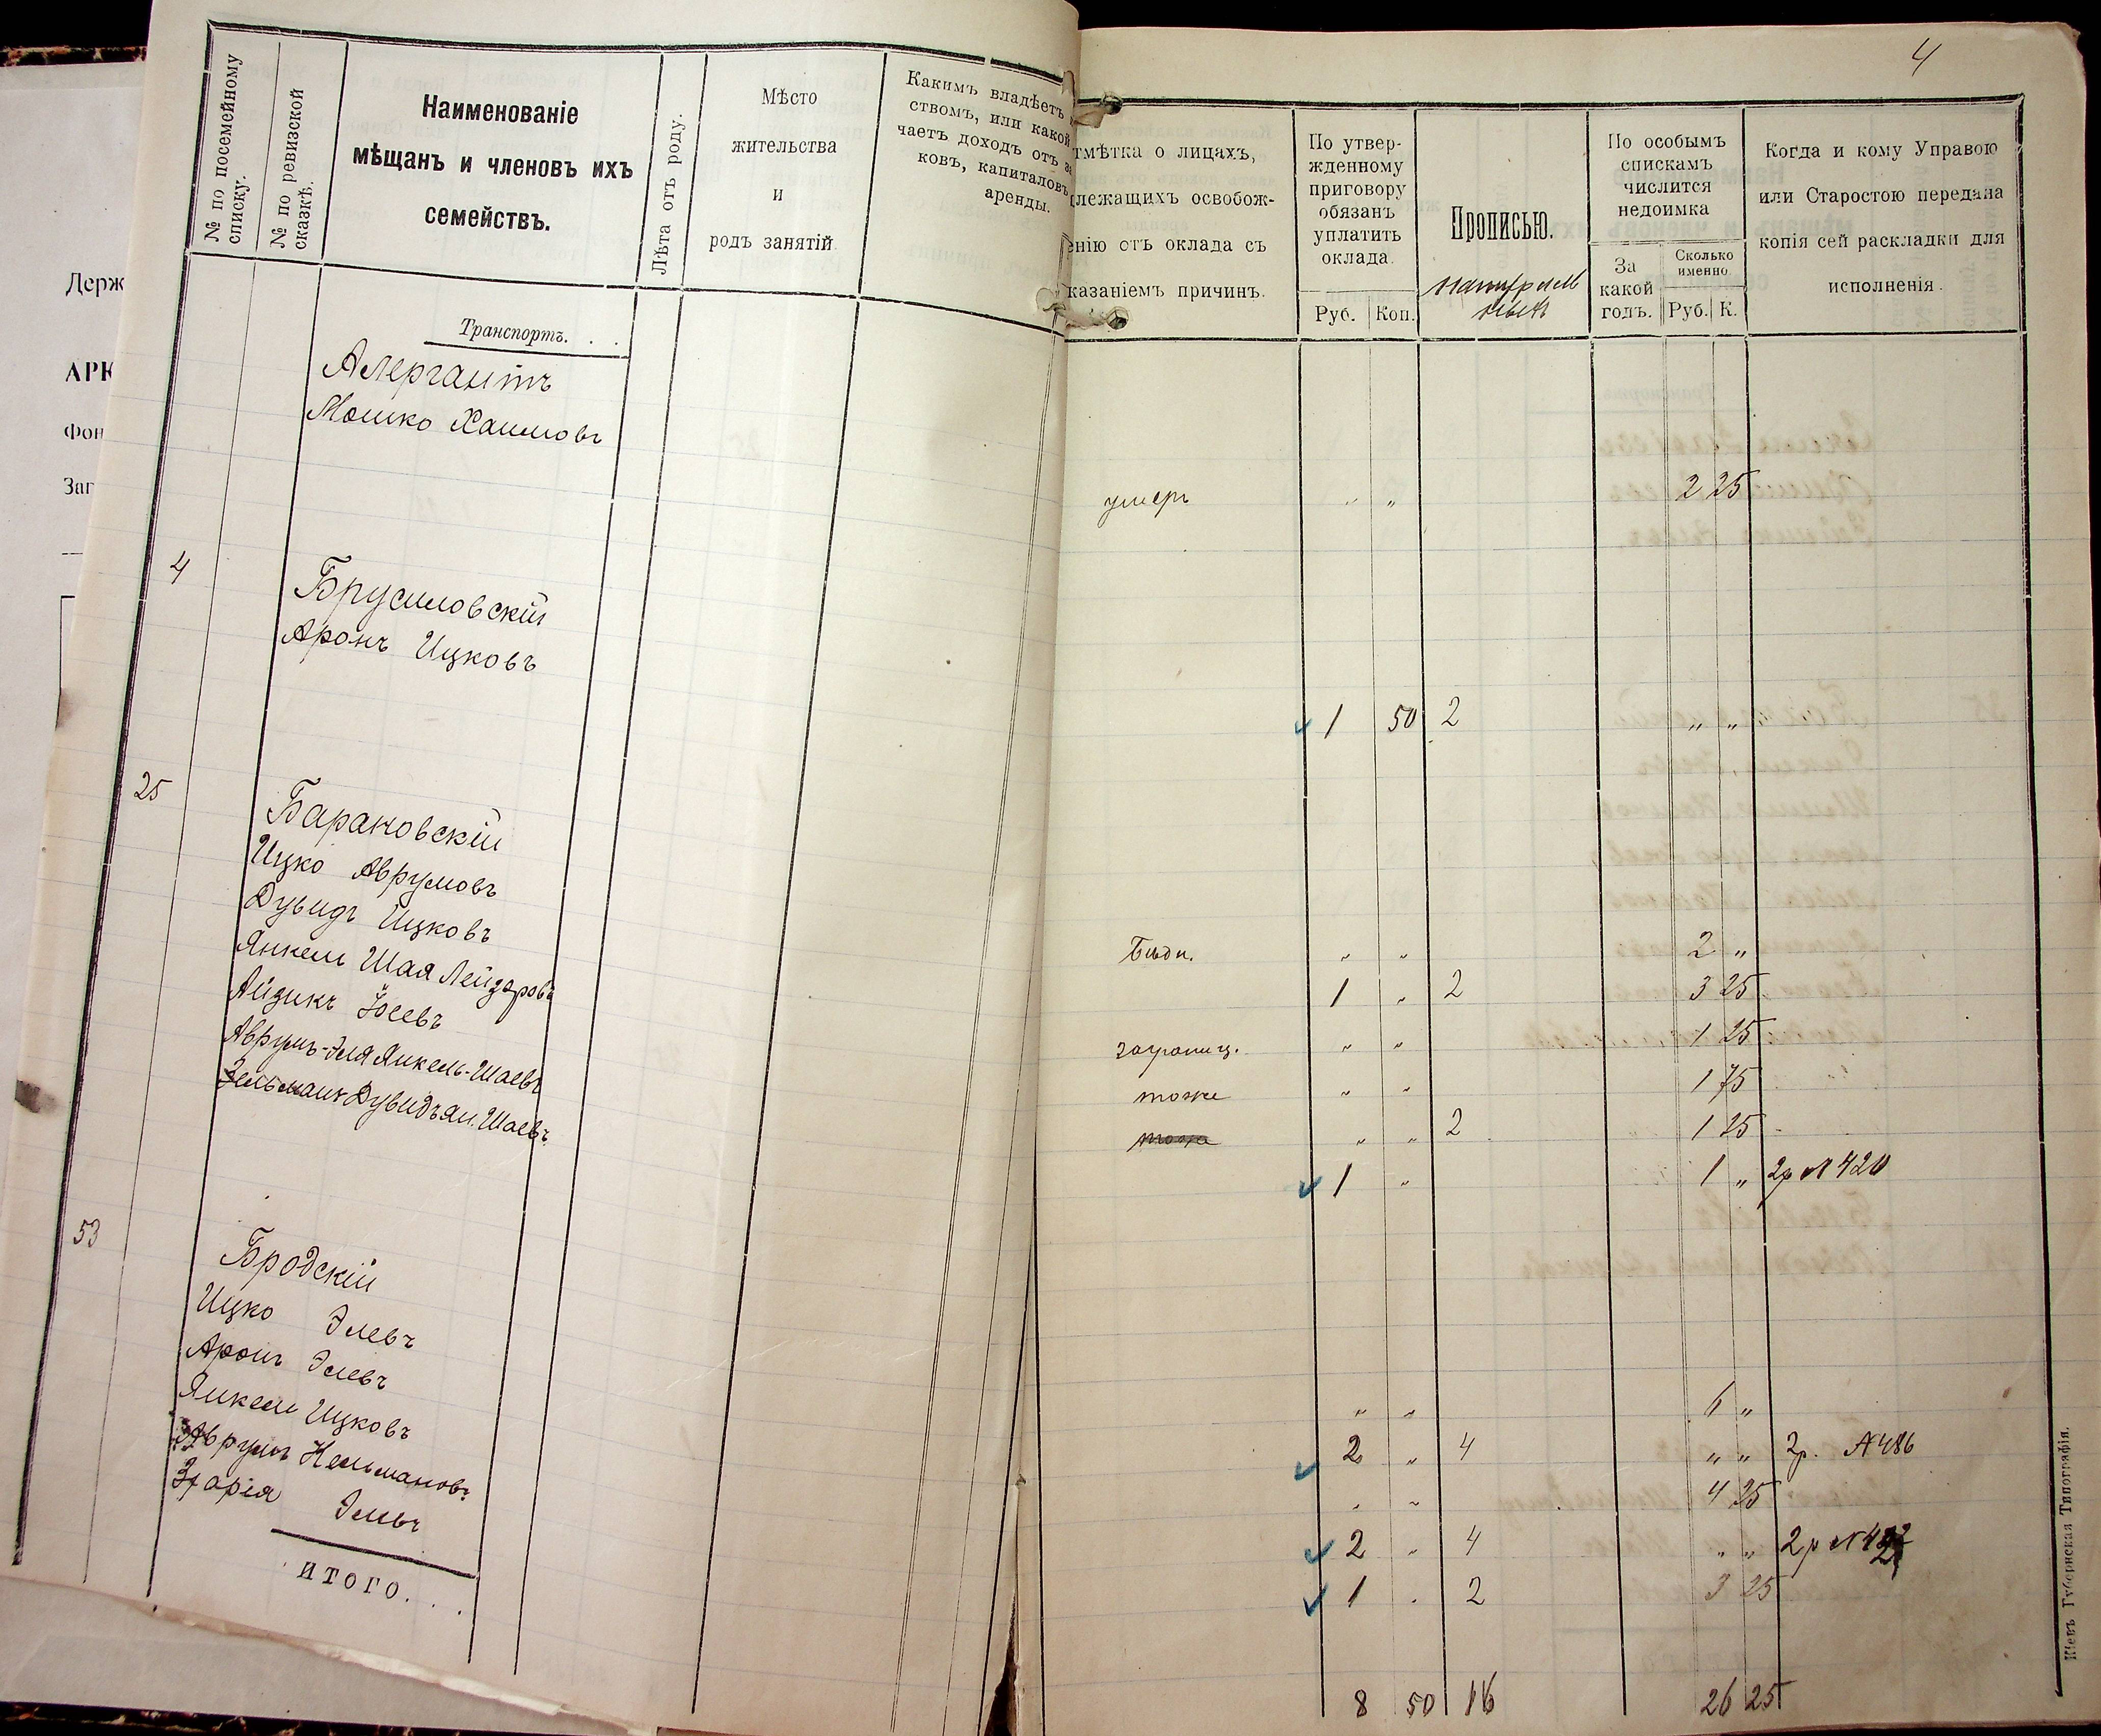 Держ
АРК
Фон
Заг
№ по посемейному
списку.
№ по ревизской
сказкѣ.
Наименованіе
мѣщанъ и членовъ ихъ
семействъ.
Лѣта отъ роду.
Мѣсто
жительства
и
родъ занятій
Какимъ владѣетъ
ствомъ, или какой
чаетъ доходъ отъ за
ковъ, капиталовъ
аренды.
Транспортъ. . .
Алергантъ
Мошко Хаимовъ
4
Брусиловскій
Аронъ Ицковъ
25
Барановскій
Ицко Аврумовъ
Дувидъ Ицковъ
Янкель Шая Лейзеровъ
Айзикъ Іосевъ
Аврумъ-Эля Янкель-Шаевъ
Зельманъ Дувидъ Ян. Шаевъ
53
Бродскій
Ицко Элевъ
Аронъ Элевъ
Янкель Ицковъ
Аврумъ Кельмановъ
Элевъ
итого. . .
4
тмѣтка о лицахъ,
лежащихъ освобож-
енію отъ оклада съ
казаніемъ причинъ.
По утвер-
жденному
приговору
обязанъ
уплатить
оклада.
Руб. Коп.
Прописью.
По особымъ
спискамъ
числится
недоимка
За
какой
годъ.
Сколько
именно
Руб. К.
Когда и кому Управою
или Старостою передана
копія сей раскладки для
исполненія.
умеръ „ „ 2 25
1 50 2 „ „
Бѣдн. „ „ 2 „
1 „ 2 3 25
заграниц. „ „ 1 25
тоже „ „ 1 75
тоже „ „ 2 1 25
1 „ 1 „ 2р №420
„ „ 6 „
2 „ 4 „ „ 2р. №486
„ „ 4 25
2 „ 4 „ „ 2р
1 . 2 3 25
8 50 16 26 25
Кіевъ Губернская Типографія.